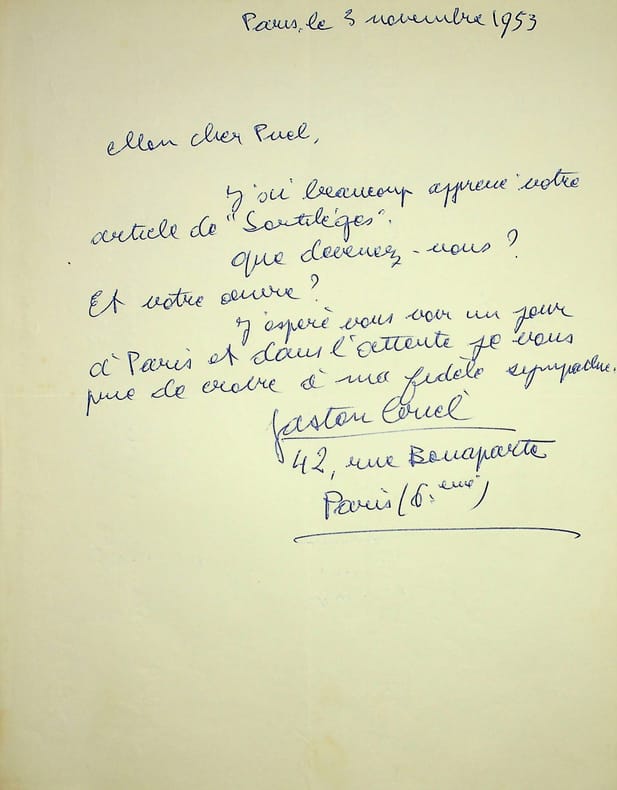 Paris, le 3 novembre 1953
Mon cher Puel,
J'ai beaucoup apprécié votre
article de "Sortilèges".
Que devenez-vous ?
Et votre œuvre ?
J'espère vous voir un jour
à Paris et dans l'attente je vous
prie de croire à ma fidèle sympathie.
Gaston Criel
42, rue Bonaparte
Paris (6.ème)